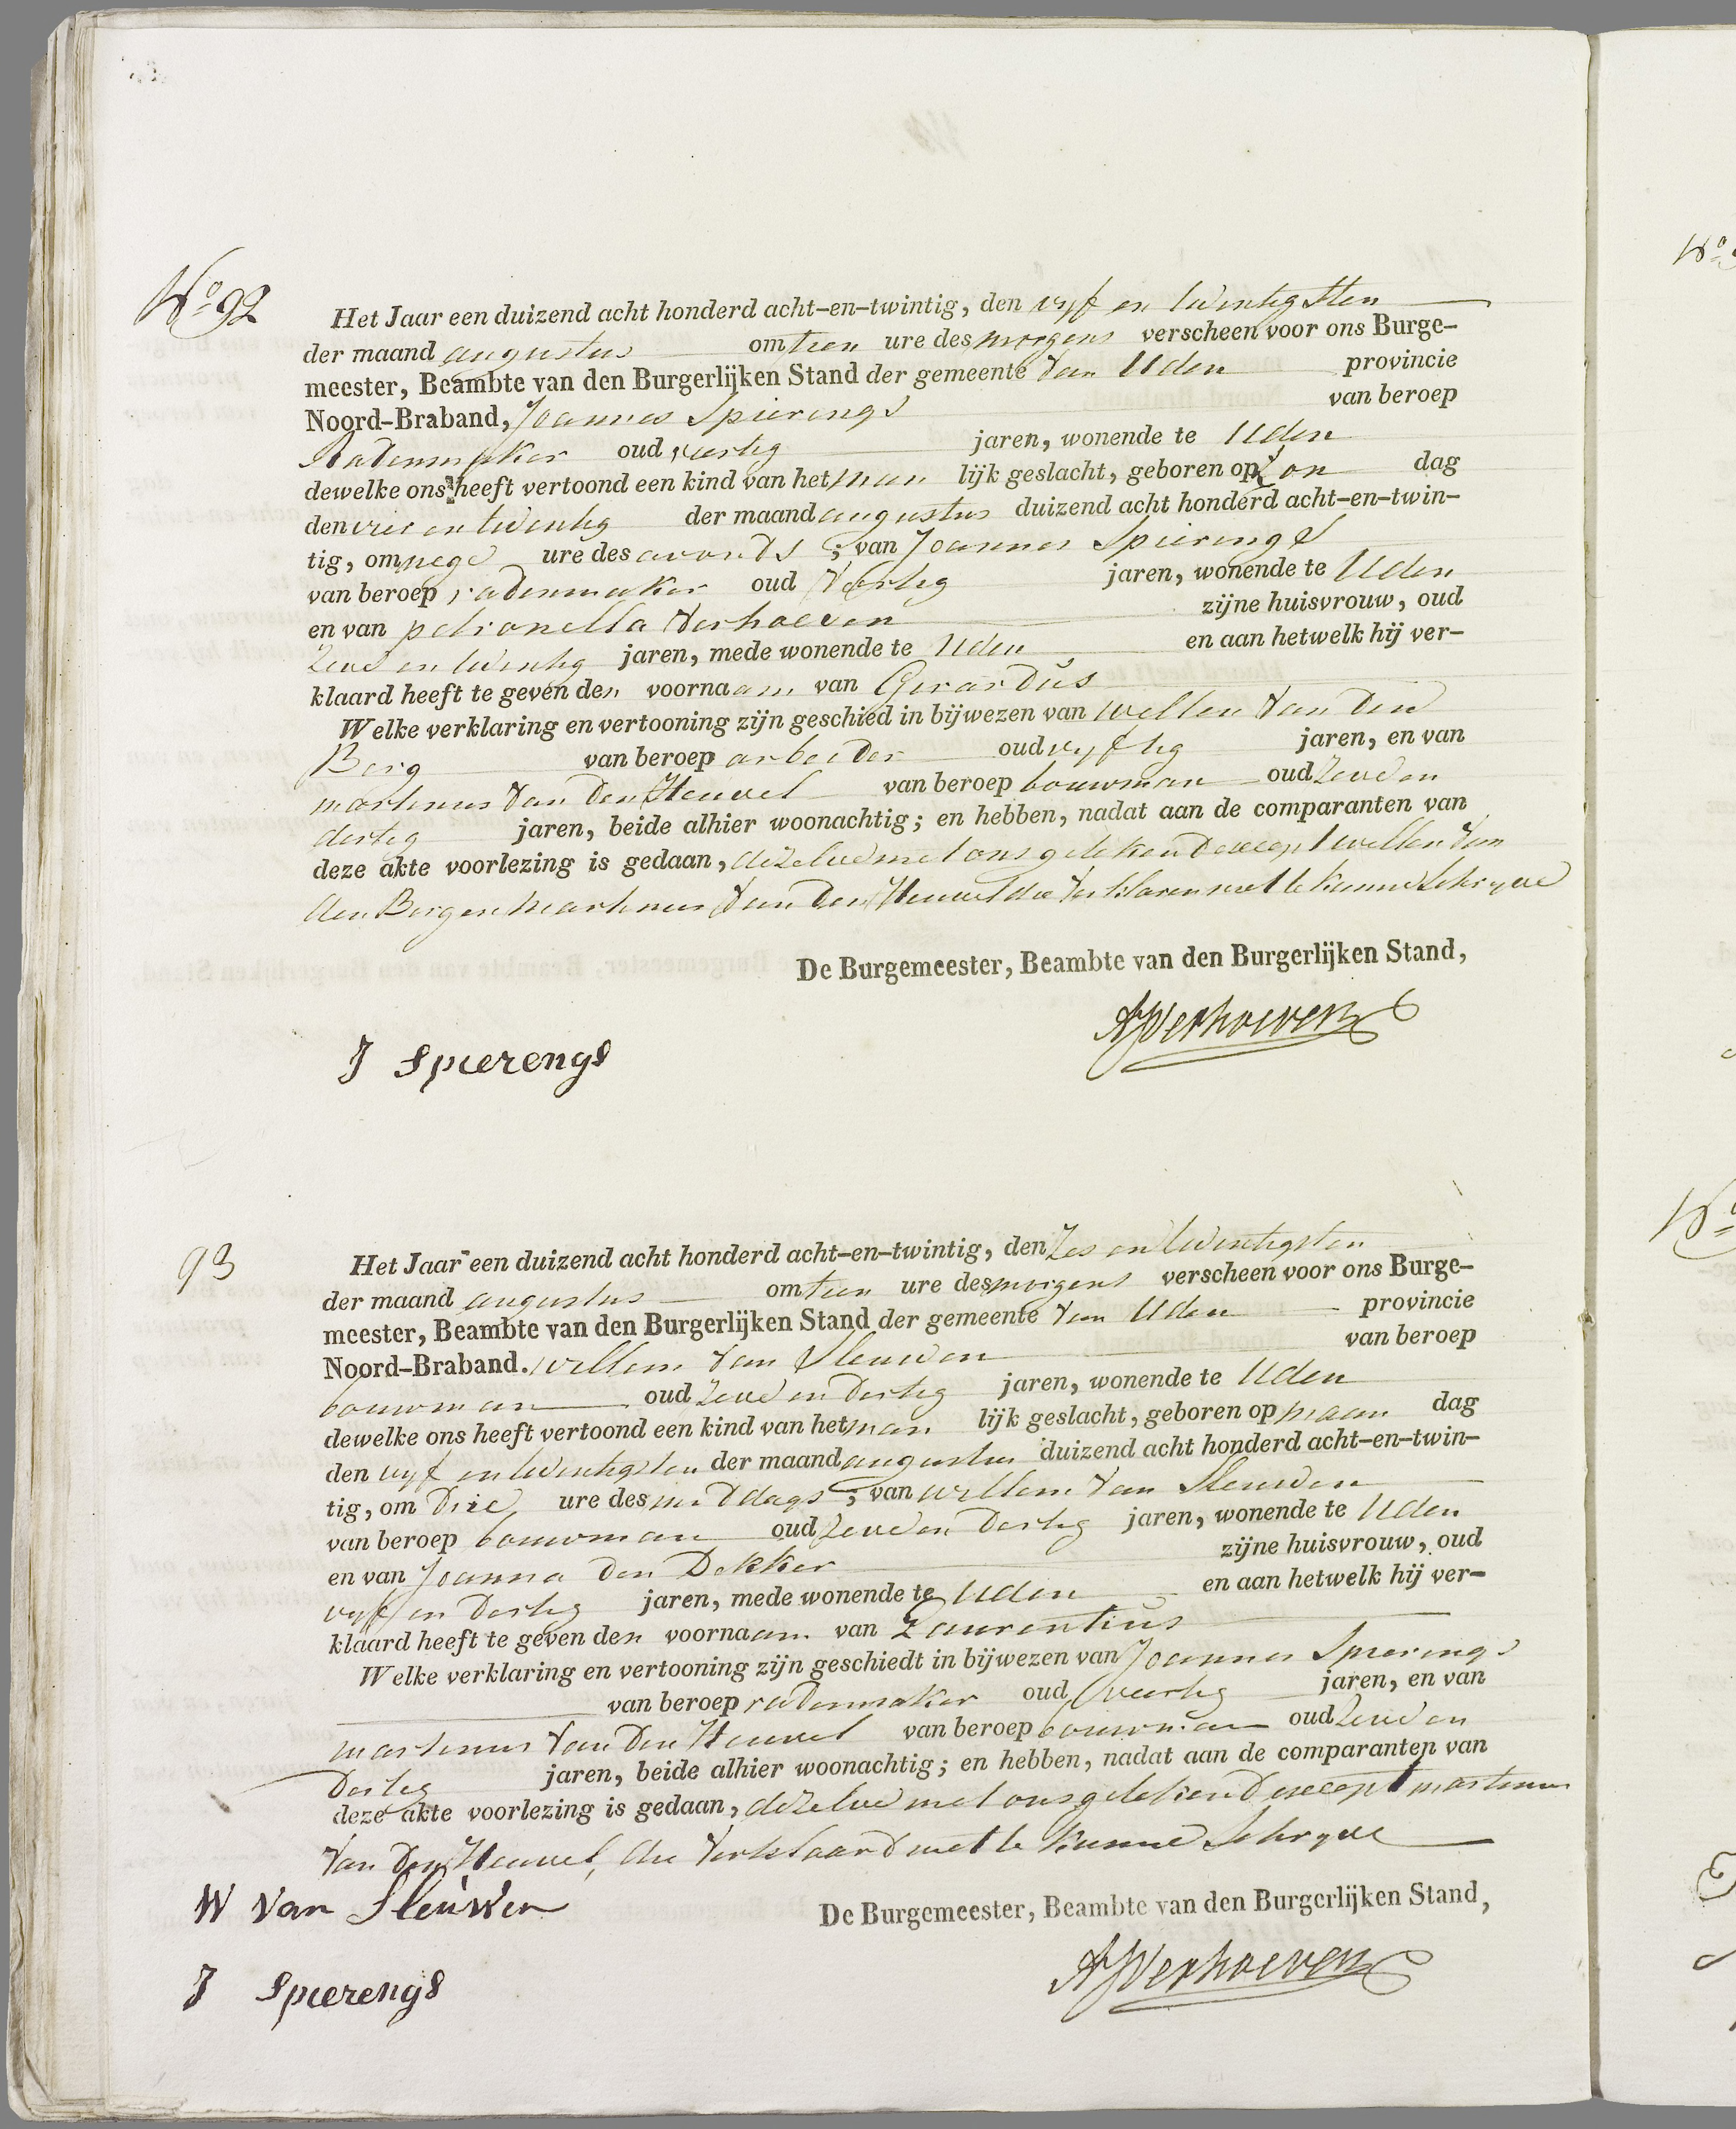 No 92
Het Jaar een duizend acht honderd acht-en-twintig, den vyf en twintigsten
der maand augustus om tien ure des morgens verscheen voor ons Burge-
meester, Beambte van den Burgerlijken Stand der gemeente van Uden provincie
Noord-Braband, Joannes Spierings van beroep
Radenmaker oud veertig jaren, wonende te Uden
dewelke ons heeft vertoond een kind van het man lijk geslacht, geboren op Zon dag
den drie en twentig der maand augustus duizend acht honderd acht-en-twin-
tig, om nege ure des avonds ; van Joannes Spierings
van beroep radenmaker oud veertig jaren, wonende te Uden
en van petronella verhoeven zijne huisvrouw, oud
Zeve en twentig jaren, mede wonende te Uden en aan hetwelk hij ver-
klaard heeft te geven den voornaam van Gerardus
Welke verklaring en vertooning zijn geschied in bijwezen van Willem van den
Berg van beroep arbeider oud vyftig jaren, en van
martinus van den Heuvel van beroep bouwman oud Zeve en
dertig jaren, beide alhier woonachtig; en hebben, nadat aan de comparanten van
deze akte voorlezing is gedaan, dezelve met ons getekend except willem van
den Berg en Martinus van den Heuvel die verklaren niet te kunne Schryve
De Burgemeester, Beambte van den Burgerlijken Stand,
AVerhoeven
J Spierengs
93
Het Jaar een duizend acht honderd acht-en-twintig, den Zes en twintigsten
der maand augustus om tien ure des morgens verscheen voor ons Burge-
meester, Beambte van den Burgerlijken Stand der gemeente van Uden provincie
Noord-Braband. Willem van Sleuwen van beroep
bouwman oud Zeve en dertig jaren, wonende te Uden
dewelke ons heeft vertoond een kind van het man lijk geslacht, geboren op maan dag
den vyf en twintigsten der maand augustus duizend acht honderd acht-en-twin-
tig, om Drie ure des middags ; van Willem van Sleuwen
van beroep bouwman oud Zeve en Dertig jaren, wonende te Uden
en van Joanna den Dekker zijne huisvrouw, oud
vyf en Dertig jaren, mede wonende te Uden en aan hetwelk hij ver-
klaard heeft te geven den voornaam van Laurentius
Welke verklaring en vertooning zijn geschiedt in bijwezen van Joannes Spierings
van beroep radenmaker oud veertig jaren, en van
martinus van Den Heuvel van beroep bouwman oud Zeve en
Dertig jaren, beide alhier woonachtig; en hebben, nadat aan de comparanten van
deze akte voorlezing is gedaan, dezelve met ons getekend except martinus
van Den Heuvel, die verklaard niet te kunne Schryve
De Burgemeester, Beambte van den Burgerlijken Stand,
W van Sleuwen
AVerhoeven
J Spierengs